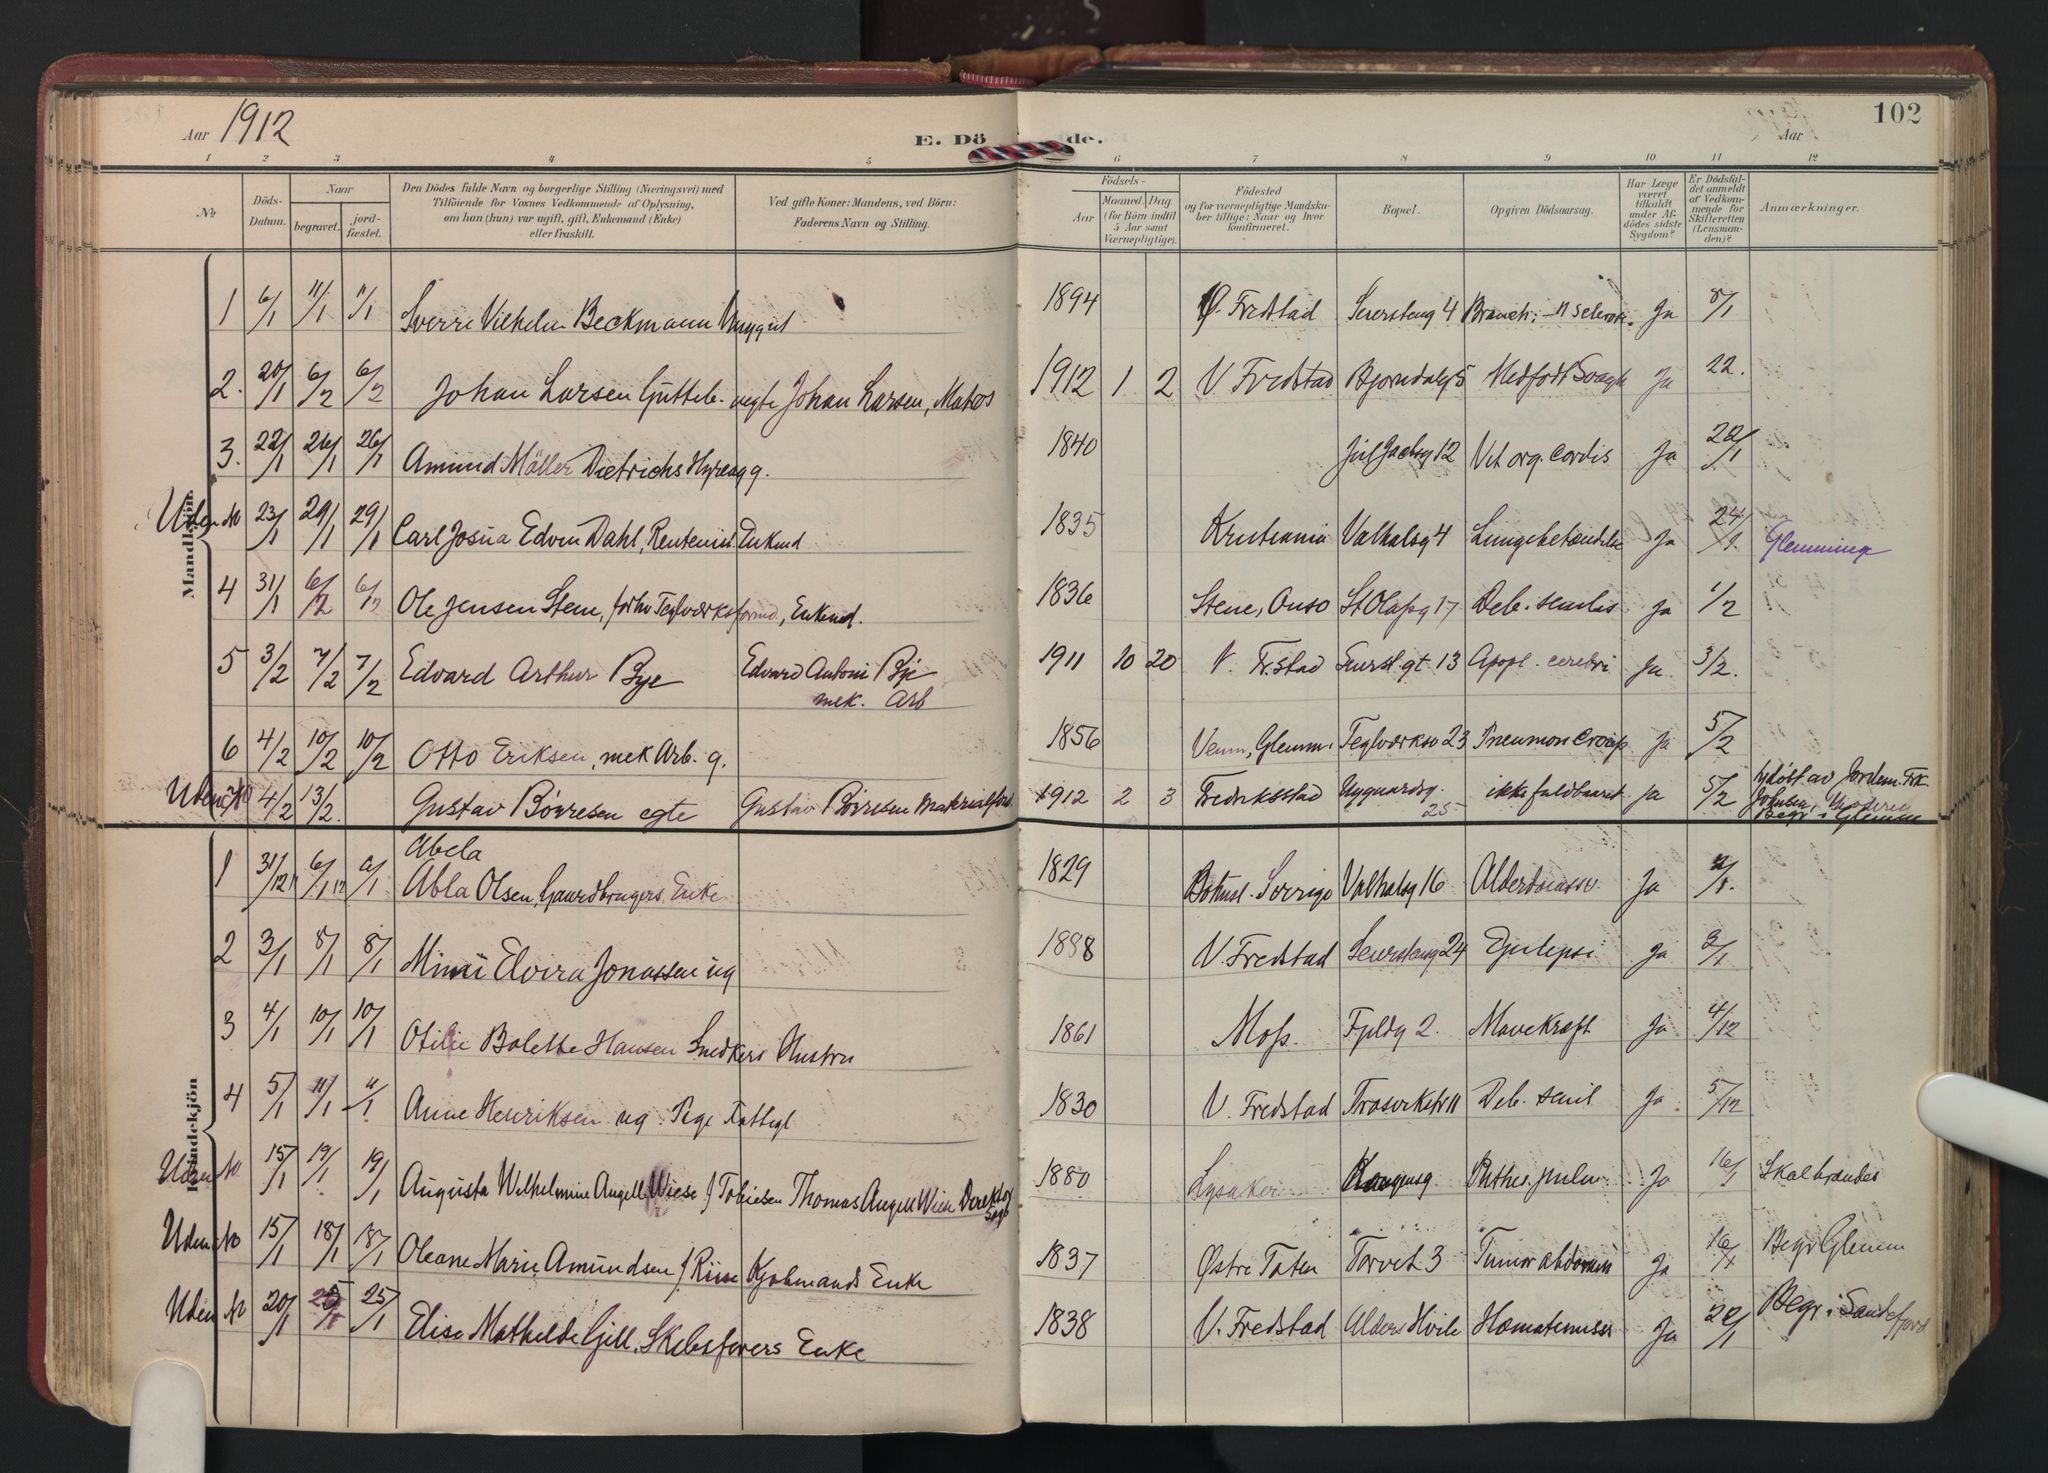 Aar 1912
E. Dö de.
Aar
102
1 2 3 4 5 6 7 8 9 10 11 12
No
Döds-Datum.
Naar
begravet.
jord-fæstet.
Den Dödes fulde Navn og borgerlige Stilling (Næringsvei) med
Tilföiende for Voxnes Vedkommende af Oplysning,
om han (hun) var ugift, gift, Enkemand (Enke)
eller fraskilt.
Ved gifte Koner: Mandens, ved Börn:
Faderens Navn og Stilling.
Födsels-
Aar
Maaned
(for Börn indtil
5 Aar samt
Værnepligtige).
Dag
Födested
og for værnepligtige Mandsku-
ber tillige: Naar og hvor
konfirmeret.
Bopæl.
Opgiven Dödsaarsag.
Har Læge
været
tilkaldt
under Af-
dödes sidste
Sygdom?
Er Dödsfal-
det anmeldt
af Vedkom-
mende for
Skifteretten
(Lensman-
den)?
Anmærkninger.
Mandkjön
1 6/1 11/1 11/1 Sverre Vilhelm Beckmann Unggut 1894 Ø. Fredstad 4 Ja 8/1
2. 20/1 6/2 6/2 Johan Larsen Gutteb. uegte Johan Larsen, Matros 1912 1 2 V Fredstad Bjorndalg 5 Medfödt Svagh Ja 22.
3. 22/1 26/1 26/1 Amund Möller Dietrichs g. 1840 Jul Jacbsg 12 Vit org. cordis Ja 22/1
Uden No 23/1 29/1 29/1 Carl Josua Edvin Dahl, Rentenist Enkmd 1835 Kristiania Valhalsg 4 Lungebetændelse Ja 24/1. Glemminge
4 31/1 6/2 6/2 Ole Jensen Stene, forhv Teglværksformd., Enkemd. 1836 Stene, Onsø St Olafsg 17 Deb. senilis Ja 1/2
5 3/2 7/2 7/2 Edvard Arthur Bye Edvard Antoni Bye 1911 10 20 V. Fr.stad gt. 13 Apopl. cerebri Ja. 3/2.
mek. Arb
6 4/2 10/2 10/2 Otto Eriksen, mek Arb. g. 1856 Glemm. Teglværksv 23 Pneumoni croup Ja 5/2
Uden No 4/2 13/2. Gustav Börresen egte Gustav Börresen Materialforv. 1912 2 3 Fredriksstad Nygaardsg. 25 ikke fuldbaaret Ja 5/2 hjdöbt av Jordem. Frk
Johnsen,
Begr i Glemm
Kvindekjön
1 31/12 11 6/1 12 6/1 Abela
Abla Olsen, Gaardbrugers Enke 1829 Bohusl. Sverige Valhalsg 16 Alderdomssv. Ja
2 3/1 8/1 8/1 Mimi Elvira Jonassen ug 1888 V. Fredstad 24 Epilepsi Ja 3/1
3 4/1 10/1 10/1 Otilie Bolette Hansen Snedkers Hustru 1861 Moss. 2. Mavekræft Ja 4/12
4 5/1 11/1 11/1 Anne Henriksen ug. Pige Fattigl 1830 V. Fredstad Trosvikstr 11 Deb. senil Ja 5/12
Uden No 15/1 19/1 19/1 Augusta Wilhelmine Angell Wiese f Tobiesen Thomas Angell Wiese Direktør 1880 Lysaker Phthis. pulm. Ja 16/1 Skal brændes
Uden No 15/1 18/1 18/1 Oleane Marie Amundsen f Riise Kjøbmands Enke 1837 Østre Toten Torvet 3 Tumor abdomin Ja 16/1 Begr Glemm
Uden No 20/1 25/1 25/1 Elise Mathilde Gjell, Skibsførers Enke 1838 V. Fredstad Alders Hvile Hæmatemesis Ja 22/1 Begr i Sandefjord